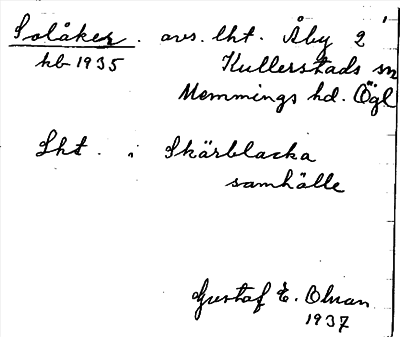 Solåker. avs. lht. Åby 2
hb 1935 Kullerstads sn
Memmings hd. Ögl
Lht. i Skärblacka
samhälle
Gustaf E. Olman
1937